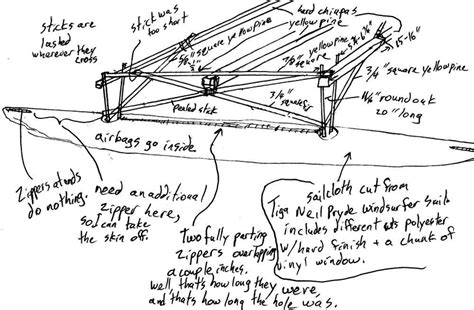 sticks are
lashed
wherever they
cross
stick was
too short
hard chiapas
yellow pine
5/8" square yellow pine
3/8" yellow pine
square
15-16"
3/4" square yellow pine
1 1/4" round oak
20" long
3/4"
square
peeled stick
airbags go inside
Zippers at ends
do nothing.
need an additional
zipper here,
so I can take
the skin off.
Two fully parting
zippers overlapping
a couple inches.
well, that's how long they were,
and thats how long the hole was.
sailcloth cut from
Tiga Neil Pryde windsurfer sail
includes different wts polyester
w/hard finish + a chunk of
vinyl window.